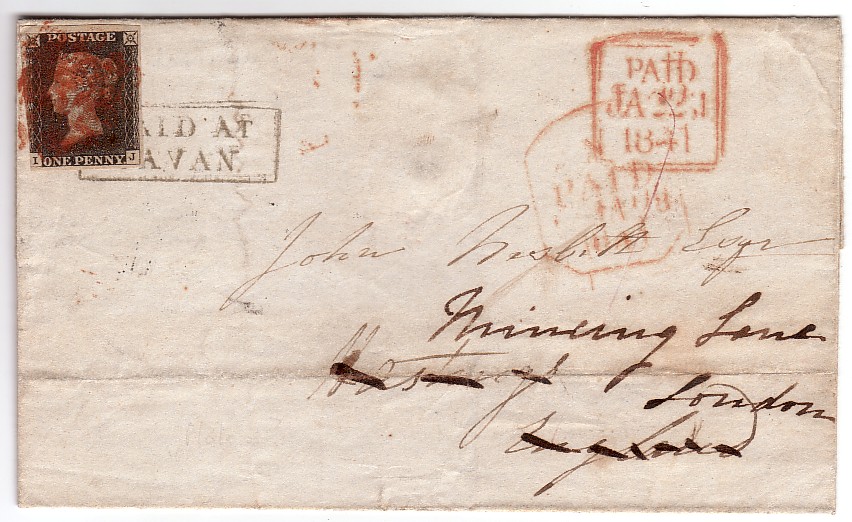 POSTAGE
I ONE PENNY J
AID AT
AVAN
PAID
JA 22
1841
PAID
John Nesbitt Esqr
Mincing Lane
Hastings
London
England
Plate